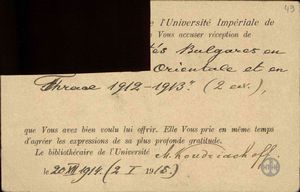 43
e l'Université Impériale de
Vous accuser réception de
tés Bulgares en
Orientale et en
Thrace 1912-1913" (2 ex.),
que Vous avez bien voulu lui offrir. Elle Vous prie en même temps
d'agréer les expressions de sa plus profonde gratitude.
Le bibliothécaire de l'Université M. Koudriachoff
le 20 XII 1914 (2 I 1915).